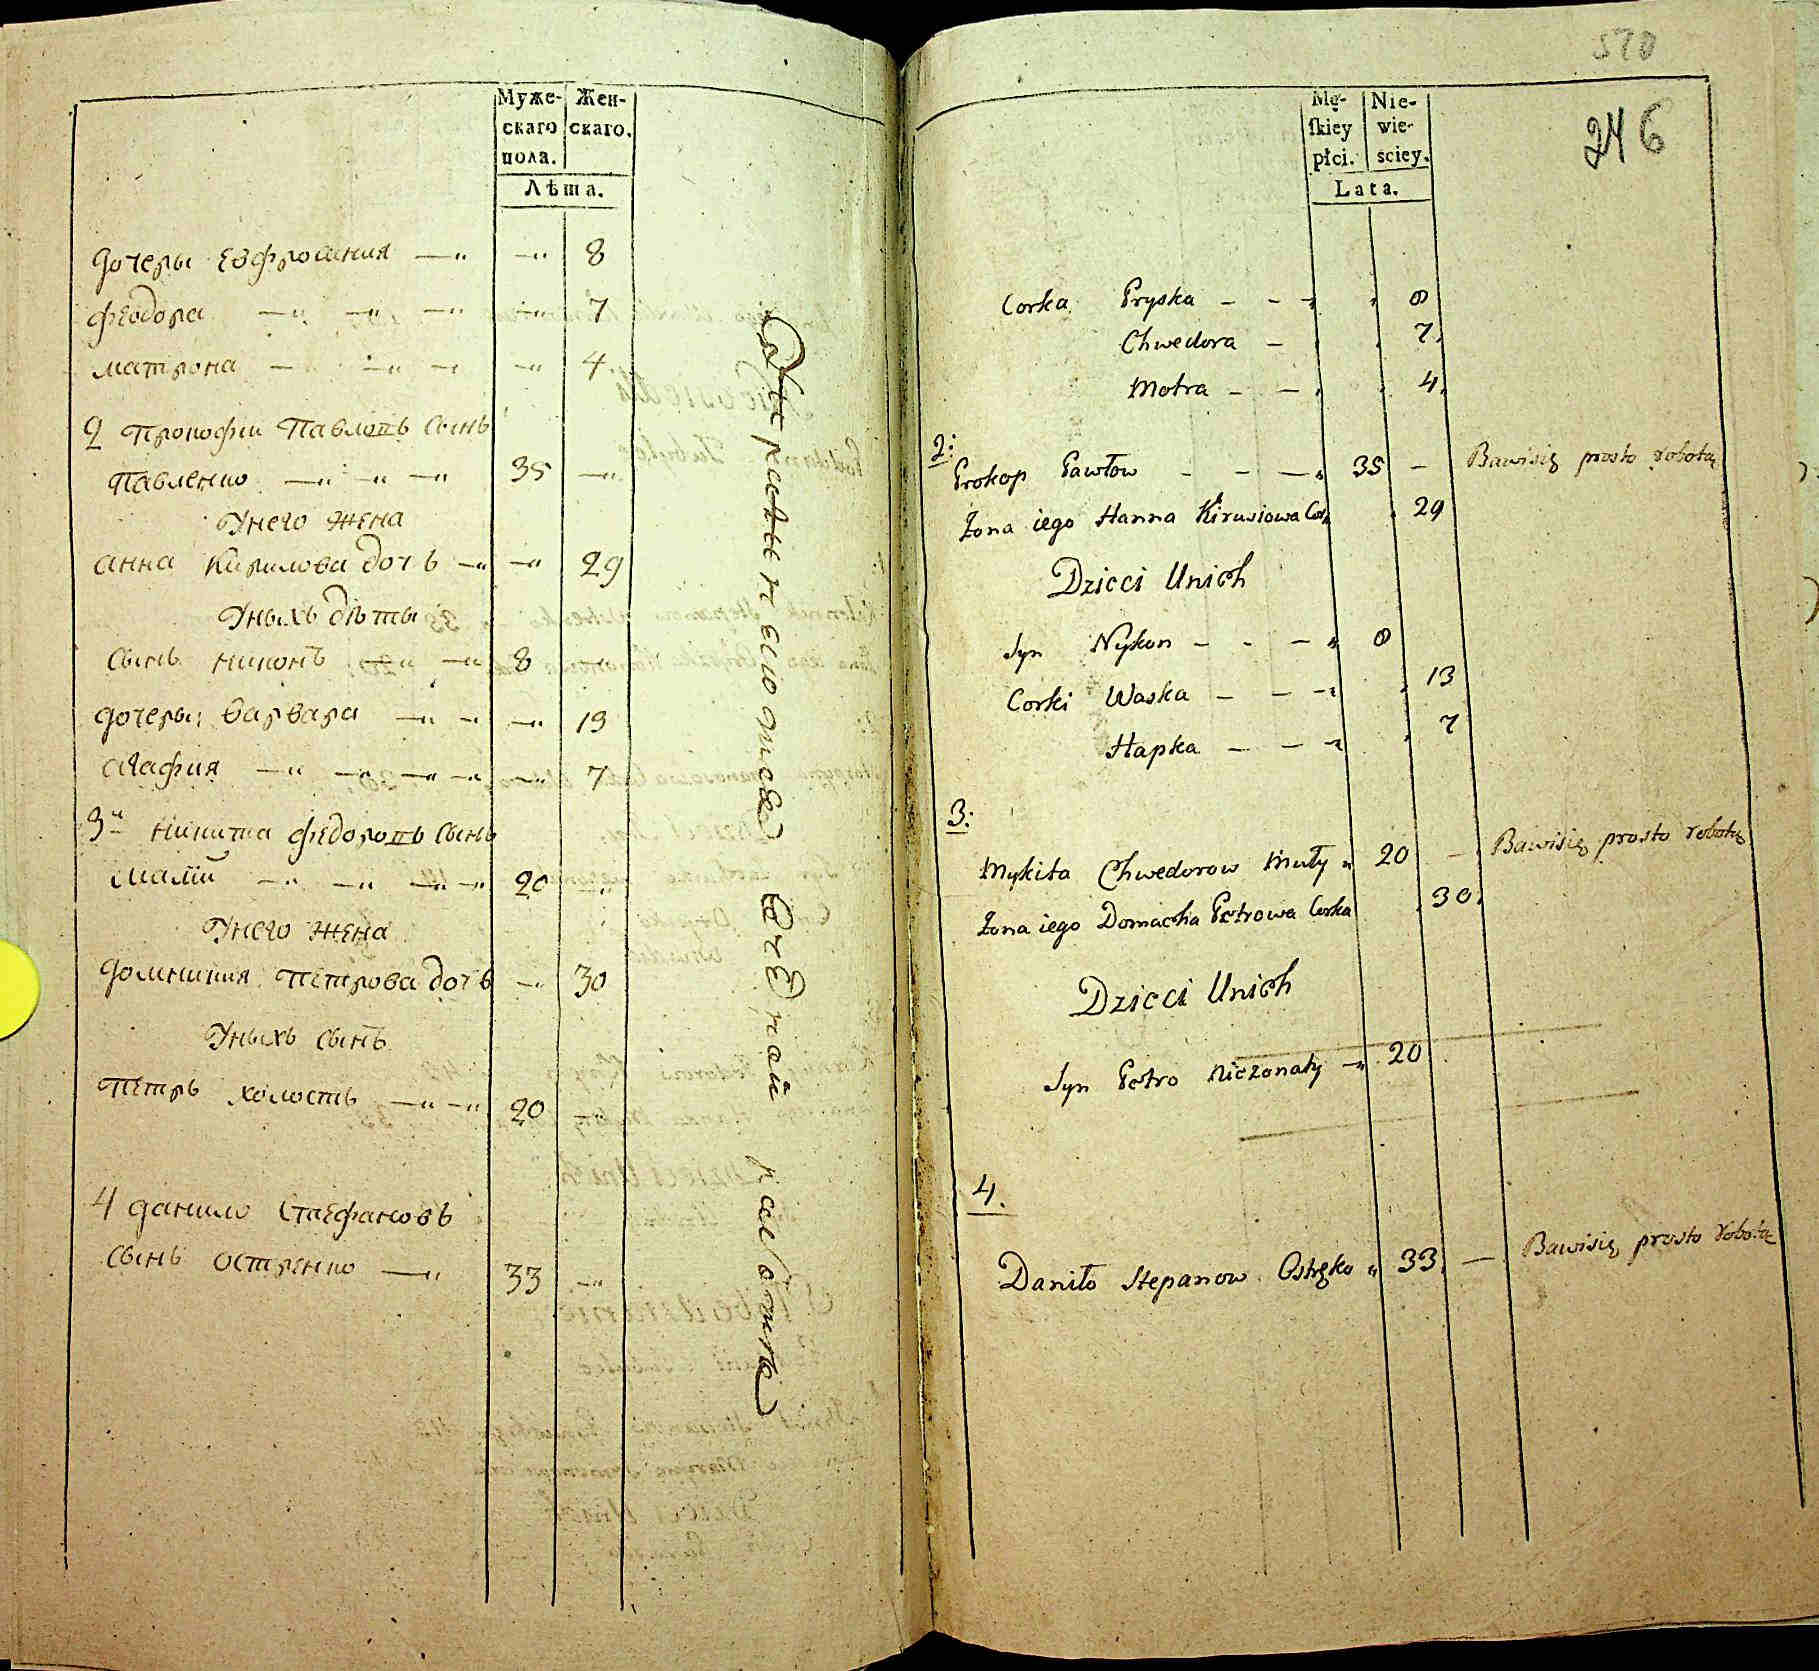 Муже-
скаго
пола.
Жен-
скаго.
Лѣта.
дочеры Евфросиния 8
Феодора 7
матрона 4
2 Прокофии Павловъ сынъ
Павленко 35
Унего жена
анна Кирилова дочь 29
Уныхъ дѣты
сынъ никонъ 8
дочеры варвара 13
агафия 7
3й никита федоровъ сынъ
малїй 20
Унего жена
домникия петрова дочь 30
Уныхъ сынъ
петръ холостъ 20
4 данило стефановъ
сынъ остренко 33
работить
570
246
Mę-
skiey
płci.
Nie-
wie-
sciey.
Lata.
Corka Pryska 8
Chwedora 7
Motra 4
2:
Prokop Pawłow 35 Bawisię prosto robotą
Żona iego Hanna Kirusiowa Cor. 29
Dzieci Unich
Syn Nykon 8
Corki Waska 13
Hapka 7
3:
Mykita Chwedorow Mały 20 Bawisię prosto robotą
Żona iego Domacha Petrowa Corka 30
Dzieci Unich
Syn Petro Nieżonaty 20
4.
Daniło Stepanow Ostręko 33 Bawisię prosto robotą